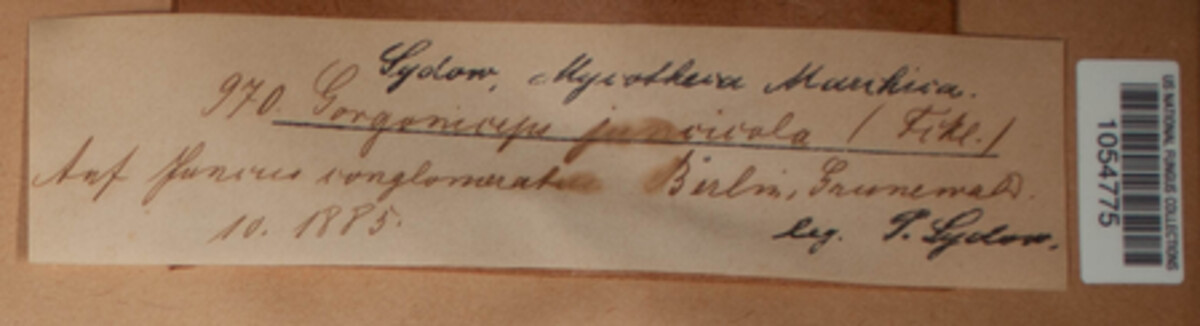 Sydow, Mycotheca Marchica.
970. Gorgoniceps juncicola (Fckl.)
Auf Juncus conglomeratus Berlin, Grunewald.
10. 1885.
leg. P. Sydow.
US NATIONAL FUNGUS COLLECTIONS
1054775